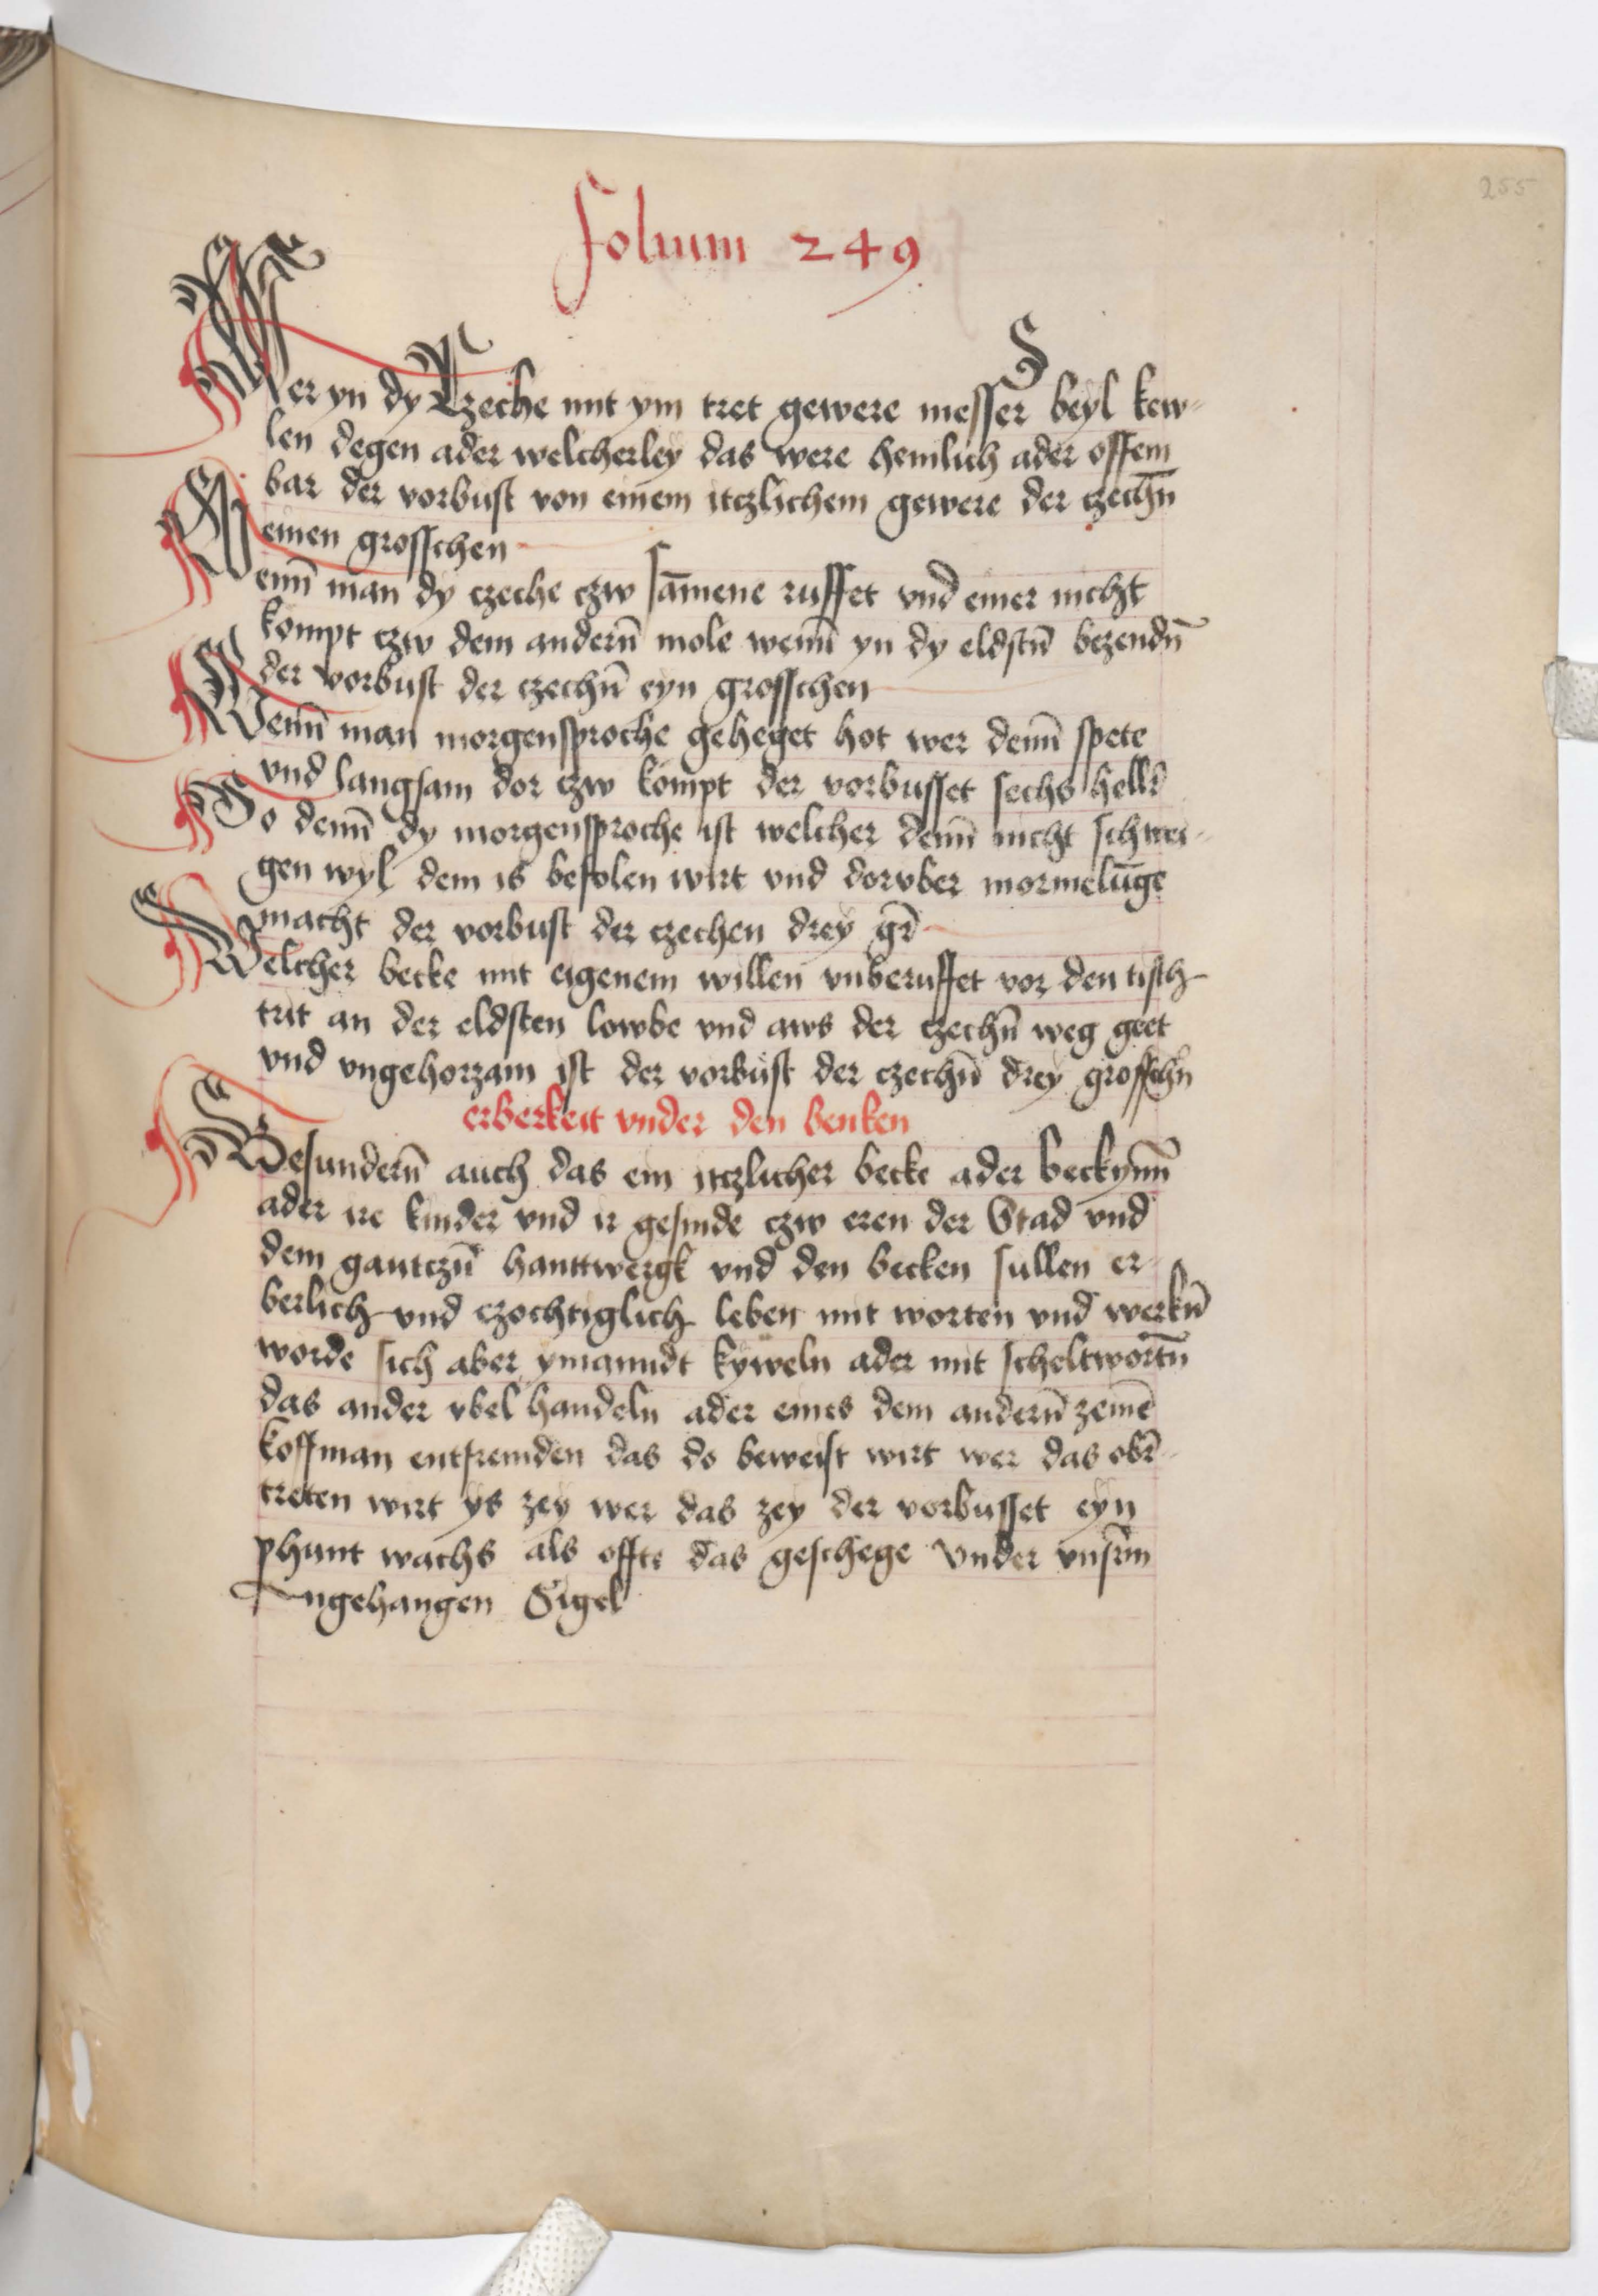 255
Folium 249
Wer yn dy Czeche mit ym tret gewere messer beyl kew-
len degen ader welcherley das were hemlich ader offem
bar der vorbust von einem itczlichem gewere der czechn̄
einen grosschen
Wenn̄ man dy czeche czw sam̄ene ruffet vnd einer nicht
kompt czw dem andern̄ mole wenn̄ yn dy eldstn̄ bezendn̄
der vorbust der czechn̄ eyn grosschen
Wenn̄ man morgensproche geheget hot wer denn̄ spete
vnd langsam dor czw kompt der vorbusset sechs hellr̄
So denn̄ dy morgensproche ist welcher denn̄ nicht schwei-
gen wyl dem is befolen wirt vnd dorvber mormelūge
macht der vorbust der czechen drey gr̄
Welcher becke mit eigenem willen vnberuffet vor den tisch
trit an der eldsten lowbe vnd aws der czechn̄ weg geet
vnd vngehorzam ist der vorbust der czechn̄ drey grosschn̄
erberkeit vnder den benken
Besundern̄ auch das ein itczlicher becke ader beckynn̄
ader ire kinder vnd ir gesinde czw eren der Stad vnd
dem gantczn̄ hanttwergk vnd den becken sullen er-
berlich vnd czochtiglich leben mit worten vnd werkn̄
worde sich aber ymanndt kyweln ader mit scheltwortn̄
das ander vbel handeln ader eines dem andern̄ zeinē
koffman entfremden das do beweist wirt wer das obr̄-
treten wirt ys zey wer das zey der vorbusset eyn
phunt wachs als offte das geschege Vnder vnsrm̄
Angehangen Sigel